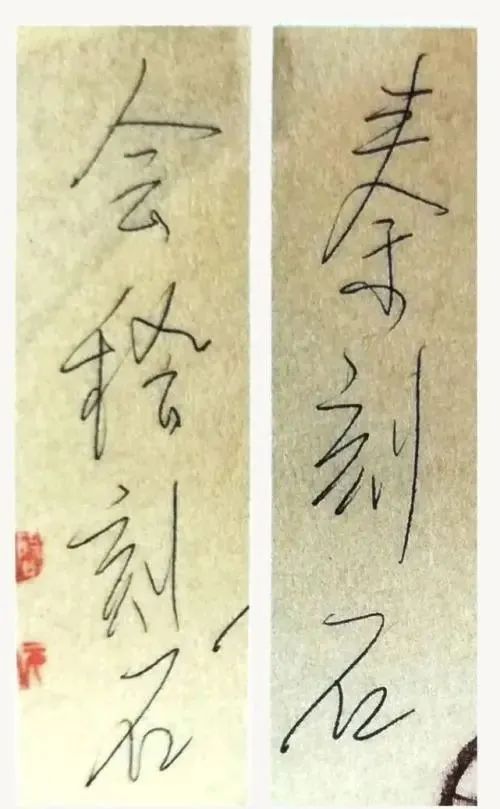 秦刻石
会稽刻石